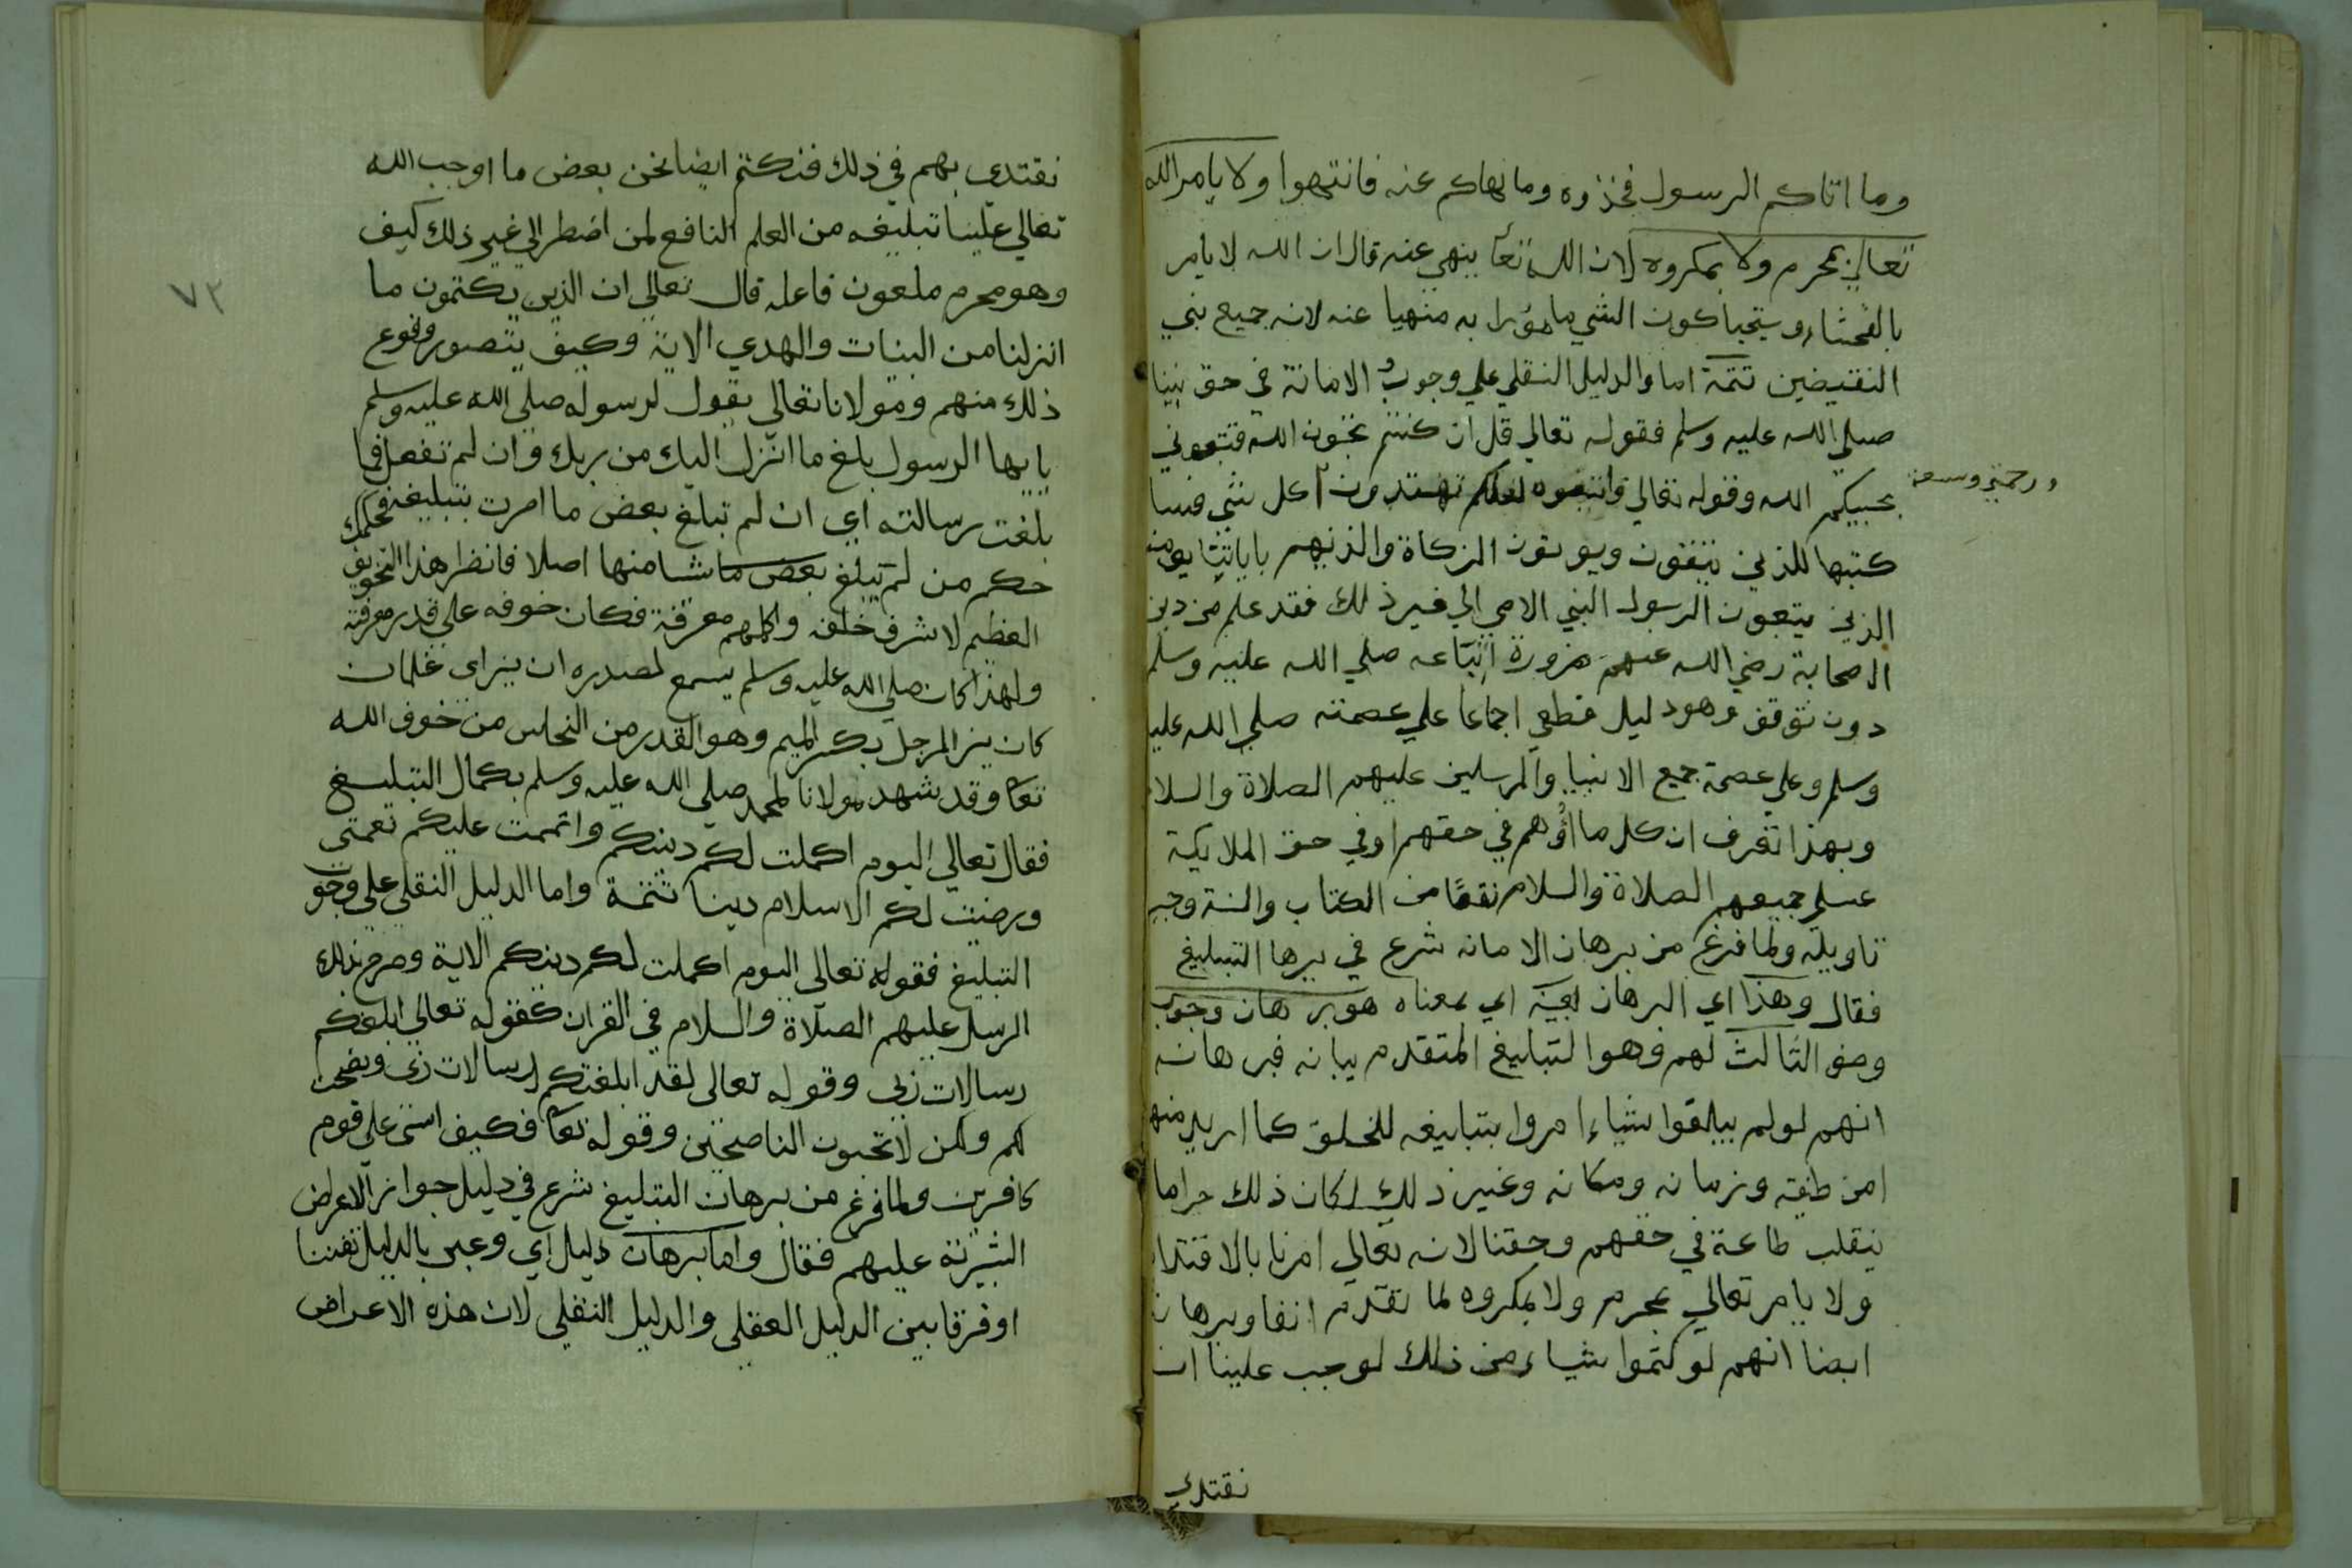 وما اتاكم الرسول فخذوه وما نهاكم عنه فانتهوا ولا يامر الله
تعالي بمحرم ولا بمكروه لان الله تعا ينهي عنه قال ان الله لا يامر
بالفحشاء ويستحيل كون الشي مامورا به منهيا عنه لانه جميع بني
النقيضين تتمة اما والدليل النقلي علي وجوب الامانة في حق نبينا
صلي الله عليه وسلم فقوله تعالي قل ان كنتم تحبون الله فتبعوني
يحببكم الله وقوله تعالي واتبعوه لعلكم تهتدون ورحمتي وسعت كل شي فسا
كتبها للذين يتقون ويوتون الزكاة والذينهم باياتنا يومنو
الذين يتبعون الرسول النبي الامي الي غير ذلك فقد علم من دين
الصحابة رضي الله عنهم ضرورة اتباعه صلي الله عليه وسلم
دون توقف وهو دليل قطعي اجماعا علي عصمته صلي الله عليه
وسلم وعلي عصمة جميع الانبيا والمرسلين عليهم الصلاة والسلام
وبهذا تعرف ان كل ما اوهم في حقهم اوفي حق الملايكة
علي جميعهم الصلاة والسلام نقصا من الكتاب والسنة وجب
تاويله ولما فرغ من برهان الامانه شرع في برها التبليغ
فقال وهذا اي البرهان بعينه اي بمعناه هو برهان وجوب
وصف الثالث لهم وهوا لتبليغ المتقدم بيانه فبرهانه
انهم لولم يبلغوا شياء امروا بتبليغه للخلق كما اريد منهم
امن طبقه وزمانه ومكانه وغير ذلك لكان ذلك حراما
ينقلب طاعة في حقهم وحقنا لانه تعالي امرنا بالاقتدا
ولا يامر تعالي بمحرم ولا بمكروه لما تقدم انفا وبرهان
ايضا انهم لو كتموا شياء من ذلك لوجب علينا ان
نقتدي
نقتدي بهم في ذلك فنكتم ايضا نحن بعض ما اوجب الله
تعالي علينا تبليغه من العلم النافع لمن اضطر الي غير ذلك كيف
وهو محرم ملعون فاعله قال تعالي ان الذين يكتمون ما
انزلنا من البينات والهدي الاية وكيف يتصور وقوع
ذلك منهم ومولانا تعالي يقول لرسوله صلي الله عليه وسلم
يايها الرسول بلغ ما انزل اليك من ربك وان لم تفعل فما
بلغت رسالته اي ان لم تبلغ بعض ما امرت بتبليغه فحكمك
حكم من لم تبلغ بعض ما شيا منها اصلا فانظر هذا التخويف
العظيم لاشرف خلقه واكلمهم معرفة فكان خوفه علي قدر معرفته
ولهذا كان صلي الله عليه وسلم يسمع لصدره ازيز اي غلمان
كان يز المرجل بكسر الميم وهو القدر من النحاس من خوف الله
تعا وقد شهد مولانا لمحمد صلي الله عليه وسلم بكمال التبليغ
فقال تعالي اليوم اكملت لكم دينكم واتممت عليكم نعمتي
ورضيت لكم الاسلام دينا تتمة واما الدليل النقلي علي وجوب
التبليغ فقوله تعالي اليوم اكملت لكم دينكم الاية وصرح بذلك
الرسل عليهم الصلاة والسلام في القران كقوله تعالي ابلغكم
رسالات ربي وقوله تعالي لقد ابلغتكم لرسالات ربي ونصحت
لكم ولكن لا تحبون الناصحين وقوله تعا فكيف اسى علي قوم
كافرين ولما فرغ من برهان التبليغ شرع في دليل جواز الاعراض
البشرية عليهم فقال واما برهان دليل اي وعبر بالدليل تفننا
اوفرقا بين الدليل العقلي والدليل النقلي لان هذه الاعراض
٧٣